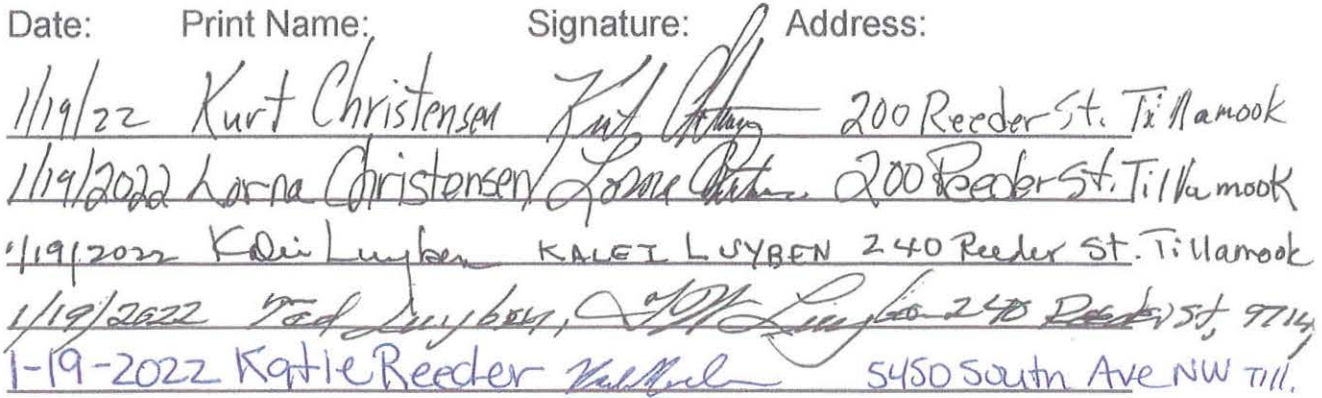 Date: Print Name: Signature: Address:
1/19/22 Kurt Christensen Kurt 200 Reeder St. Tillamook
1/19/2022 Lorna Christensen Lorna 200 Reeder St. Tillamook
1/19/2022 Kalei Luyben KALEI LUYBEN 240 Reeder St. Tillamook
1/19/2022 Ted Luyben, Luyben 240 Reeder St, 97141
1-19-2022 Katie Reeder 5450 South Ave NW Till.